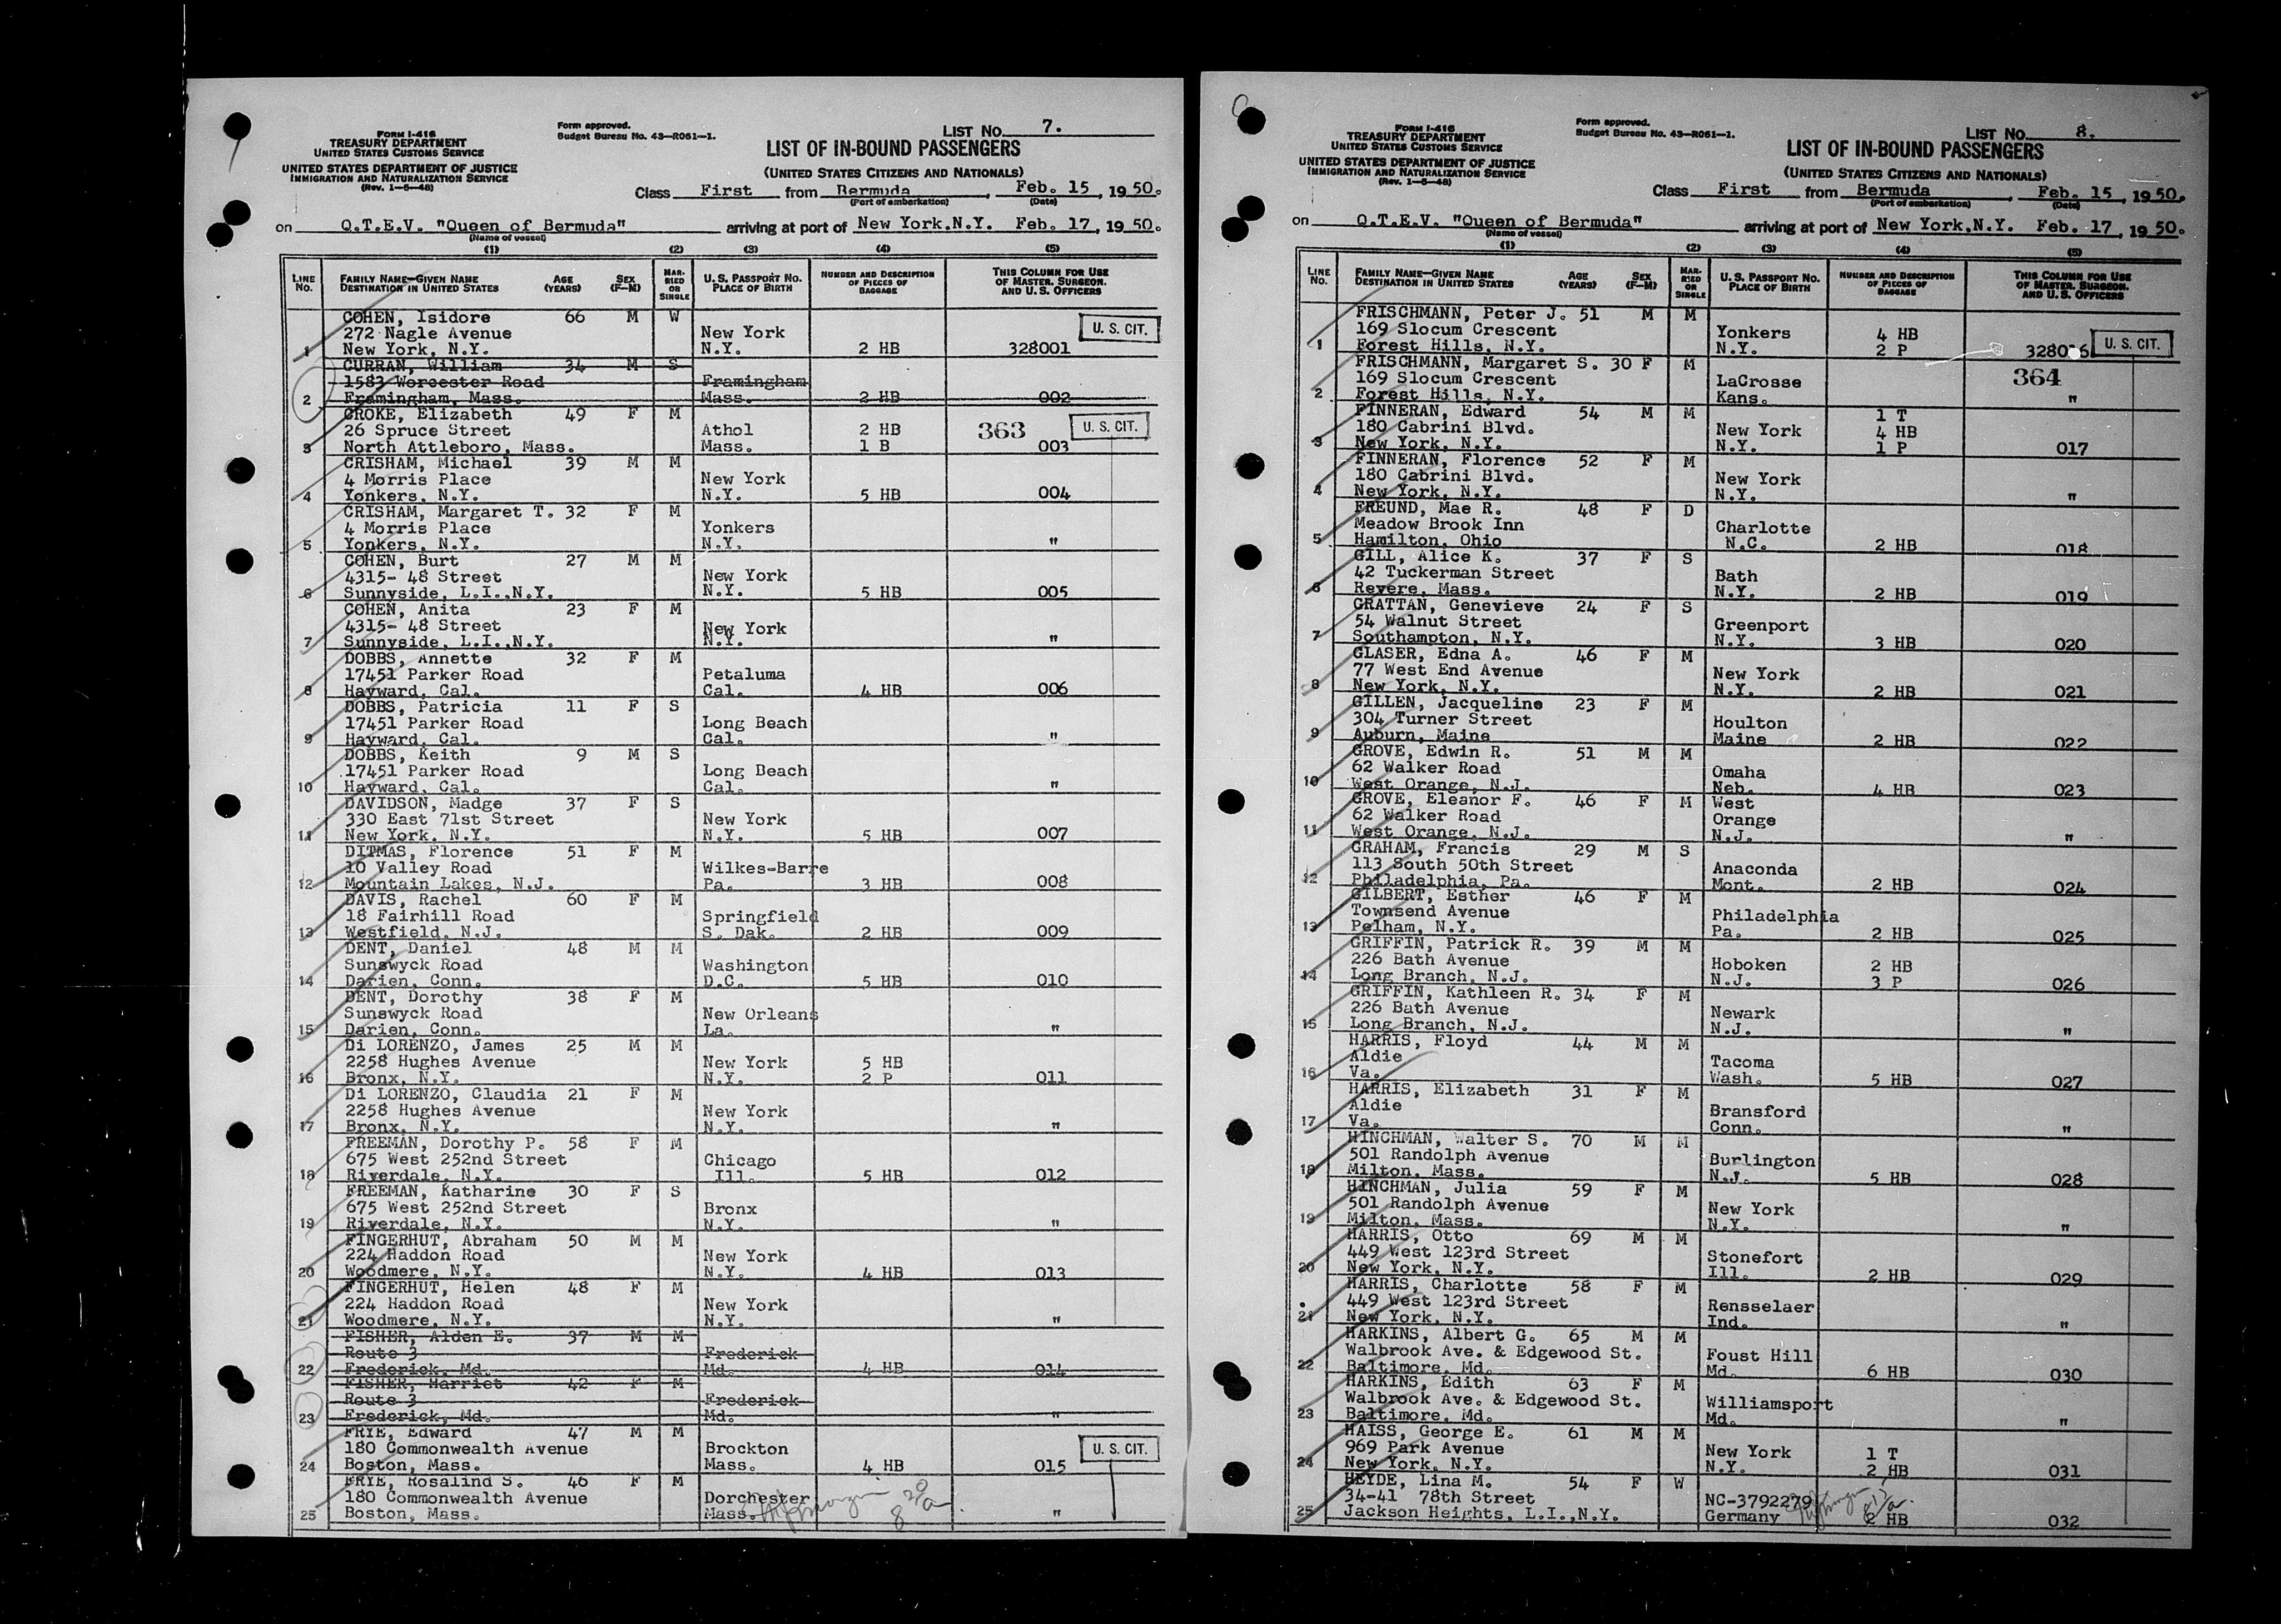 FORM I-416
TREASURY DEPARTMENT
UNITED STATES CUSTOMS SERVICE
UNITED STATES DEPARTMENT OF JUSTICE
IMMIGRATION AND NATURALIZATION SERVICE
(Rev. 1-5-48)
Form approved.
Budget Bureau No. 43-R061-1.
LIST No. 7.
LIST OF IN-BOUND PASSENGERS
(UNITED STATES CITIZENS AND NATIONALS)
Class First from Bermuda, Feb. 15, 1950.
(Port of embarkation) (Date)
on Q.T.E.V. "Queen of Bermuda" arriving at port of New York.N.Y. Feb. 17, 1950.
(Name of vessel)
(1) (2) (3) (4) (5)
LINE No. FAMILY NAME—GIVEN NAME DESTINATION IN UNITED STATES AGE (YEARS) SEX (F—M) MARRIED OR SINGLE U.S. PASSPORT No. PLACE OF BIRTH NUMBER AND DESCRIPTION OF PIECES OF BAGGAGE THIS COLUMN FOR USE OF MASTER, SURGEON, AND U.S. OFFICERS
COHEN, Isidore 66 M W U. S. CIT.
272 Nagle Avenue New York
1 New York, N.Y. N.Y. 2 HB 328001
CURRAN, William 34 M S
1583 Worcester Road Framingham
2 Framingham, Mass. Mass. 2 HB 002
CROKE, Elizabeth 49 F M
26 Spruce Street Athol 2 HB 363 U. S. CIT.
3 North Attleboro, Mass. Mass. 1 B 003
CRISHAM, Michael 39 M M
4 Morris Place New York
4 Yonkers, N.Y. N.Y. 5 HB 004
CRISHAM, Margaret T. 32 F M
4 Morris Place Yonkers
5 Yonkers, N.Y. N.Y. "
COHEN, Burt 27 M M
4315- 48 Street New York
6 Sunnyside, L.I.,N.Y. N.Y. 5 HB 005
COHEN, Anita 23 F M
4315- 48 Street New York
7 Sunnyside, L.I.,N.Y. N.Y. "
DOBBS, Annette 32 F M
17451 Parker Road Petaluma
8 Hayward, Cal. Cal. 4 HB 006
DOBBS, Patricia 11 F S
17451 Parker Road Long Beach
9 Hayward, Cal. Cal. "
DOBBS, Keith 9 M S
17451 Parker Road Long Beach
10 Hayward, Cal. Cal. "
DAVIDSON, Madge 37 F S
330 East 71st Street New York
11 New York, N.Y. N.Y. 5 HB 007
DITMAS, Florence 51 F M
10 Valley Road Wilkes-Barre
12 Mountain Lakes, N.J. Pa. 3 HB 008
DAVIS, Rachel 60 F M
18 Fairhill Road Springfield
13 Westfield, N.J. S. Dak. 2 HB 009
DENT, Daniel 48 M M
Sunswyck Road Washington
14 Darien, Conn. D.C. 5 HB 010
DENT, Dorothy 38 F M
Sunswyck Road New Orleans
15 Darien, Conn. La. "
Di LORENZO, James 25 M M
2258 Hughes Avenue New York 5 HB
16 Bronx, N.Y. N.Y. 2 P 011
Di LORENZO, Claudia 21 F M
2258 Hughes Avenue New York
17 Bronx, N.Y. N.Y. "
FREEMAN, Dorothy P. 58 F M
675 West 252nd Street Chicago
18 Riverdale, N.Y. Ill. 5 HB 012
FREEMAN, Katharine 30 F S
675 West 252nd Street Bronx
19 Riverdale, N.Y. N.Y. "
FINGERHUT, Abraham 50 M M
224 Haddon Road New York
20 Woodmere, N.Y. N.Y. 4 HB 013
FINGERHUT, Helen 48 F M
224 Haddon Road New York
21 Woodmere, N.Y. N.Y. "
FISHER, Alden E. 37 M M
Route 3 Frederick
22 Frederick, Md. Md. 4 HB 014
FISHER, Harriet 42 F M
Route 3 Frederick
23 Frederick, Md. Md. "
FRYE, Edward 47 M M
180 Commonwealth Avenue Brockton U. S. CIT.
24 Boston, Mass. Mass. 4 HB 015
FRYE, Rosalind S. 46 F M
180 Commonwealth Avenue Dorchester
25 Boston, Mass. Mass. "
FORM I-416
TREASURY DEPARTMENT
UNITED STATES CUSTOMS SERVICE
UNITED STATES DEPARTMENT OF JUSTICE
IMMIGRATION AND NATURALIZATION SERVICE
(Rev. 1-5-48)
Form approved.
Budget Bureau No. 43-R061-1.
LIST No. 8.
LIST OF IN-BOUND PASSENGERS
(UNITED STATES CITIZENS AND NATIONALS)
Class First from Bermuda, Feb. 15, 1950.
(Port of embarkation) (Date)
on Q.T.E.V. "Queen of Bermuda" arriving at port of New York,N.Y. Feb. 17, 1950.
(Name of vessel)
(1) (2) (3) (4) (5)
LINE No. FAMILY NAME—GIVEN NAME DESTINATION IN UNITED STATES AGE (YEARS) SEX (F—M) MARRIED OR SINGLE U.S. PASSPORT No. PLACE OF BIRTH NUMBER AND DESCRIPTION OF PIECES OF BAGGAGE THIS COLUMN FOR USE OF MASTER, SURGEON, AND U.S. OFFICERS
FRISCHMANN, Peter J. 51 M M
169 Slocum Crescent Yonkers 4 HB U. S. CIT.
1 Forest Hills, N.Y. N.Y. 2 P 328016
FRISCHMANN, Margaret S. 30 F M
169 Slocum Crescent LaCrosse 364
2 Forest Hills, N.Y. Kans. "
FINNERAN, Edward 54 M M 1 T
180 Cabrini Blvd. New York 4 HB
3 New York, N.Y. N.Y. 1 P 017
FINNERAN, Florence 52 F M
180 Cabrini Blvd. New York
4 New York, N.Y. N.Y. "
FREUND, Mae R. 48 F D
Meadow Brook Inn Charlotte
5 Hamilton, Ohio N.C. 2 HB 018
GILL, Alice K. 37 F S
42 Tuckerman Street Bath
6 Revere, Mass. N.Y. 2 HB 019
GRATTAN, Genevieve 24 F S
54 Walnut Street Greenport
7 Southampton, N.Y. N.Y. 3 HB 020
GLASER, Edna A. 46 F M
77 West End Avenue New York
8 New York, N.Y. N.Y. 2 HB 021
GILLEN, Jacqueline 23 F M
304 Turner Street Houlton
9 Auburn, Maine Maine 2 HB 022
GROVE, Edwin R. 51 M M
62 Walker Road Omaha
10 West Orange, N.J. Neb. 4 HB 023
GROVE, Eleanor F. 46 F M West
62 Walker Road Orange
11 West Orange, N.J. N.J. "
GRAHAM, Francis 29 M S
113 South 50th Street Anaconda
12 Philadelphia, Pa. Mont. 2 HB 024
GILBERT, Esther 46 F M
Townsend Avenue Philadelphia
13 Pelham, N.Y. Pa. 2 HB 025
GRIFFIN, Patrick R. 39 M M
226 Bath Avenue Hoboken 2 HB
14 Long Branch, N.J. N.J. 3 P 026
GRIFFIN, Kathleen R. 34 F M
226 Bath Avenue Newark
15 Long Branch, N.J. N.J. "
HARRIS, Floyd 44 M M
Aldie Tacoma
16 Va. Wash. 5 HB 027
HARRIS, Elizabeth 31 F M
Aldie Bransford
17 Va. Conn. "
HINCHMAN, Walter S. 70 M M
501 Randolph Avenue Burlington
18 Milton, Mass. N.J. 5 HB 028
HINCHMAN, Julia 59 F M
501 Randolph Avenue New York
19 Milton, Mass. N.Y. "
HARRIS, Otto 69 M M
449 West 123rd Street Stonefort
20 New York, N.Y. Ill. 2 HB 029
HARRIS, Charlotte 58 F M
449 West 123rd Street Rensselaer
21 New York, N.Y. Ind. "
HARKINS, Albert G. 65 M M
Walbrook Ave. & Edgewood St. Foust Hill
22 Baltimore, Md. Md. 6 HB 030
HARKINS, Edith 63 F M
Walbrook Ave. & Edgewood St. Williamsport
23 Baltimore, Md. Md. "
HAISS, George E. 61 M M
969 Park Avenue New York 1 T
24 New York, N.Y. N.Y. 2 HB 031
HEYDE, Lina M. 54 F W
34-41 78th Street NC-3792279
25 Jackson Heights, L.I.,N.Y. Germany 2 HB 032